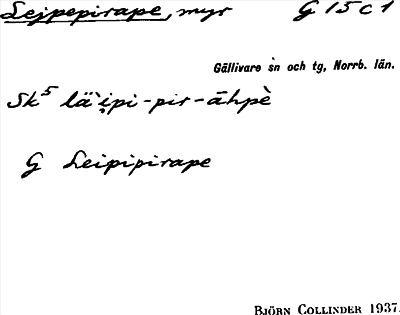 Lejpepirape, myr G 15 c 1
Gällivare sn och tg, Norrb. län.
Sk⁵ lä`i̦pi-pir-āhpè
G Leipipirape
BJÖRN COLLINDER 1937.